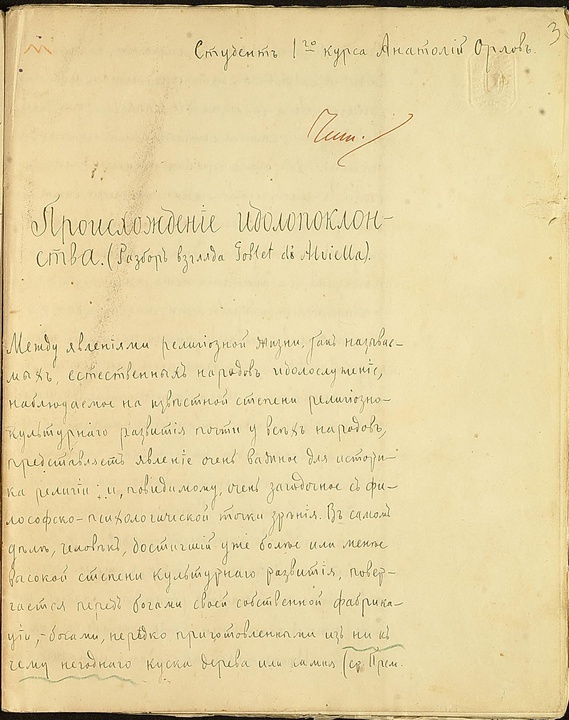 3
Студентъ 1го курса Анатолій Орловъ.
Чит.
Происхожденіе идолопоклон-
ства. (Разборъ взгляда Goblet d'Alviella).
Между явленіями религіозной жизни, такъ называе-
мыхъ, естественныхъ народовъ идолослуженіе,
наблюдаемое на извѣстной степени религіозно-
культурнаго развитія почти у всѣхъ народовъ,
представляетъ явленіе очень важное для истори-
ка религіи и, повидимому, очень загадочное съ фи-
лософско-психологической точки зрѣнія. Въ самомъ
дѣлѣ, человѣкъ, достигшій уже болѣе или менѣе
высокой степени культурнаго развитія, повер-
гается передъ богами своей собственной фабрика-
ціи, - богами, нерѣдко приготовленными изъ ни къ
чему негоднаго куска дерева или камня (ср. Прем.